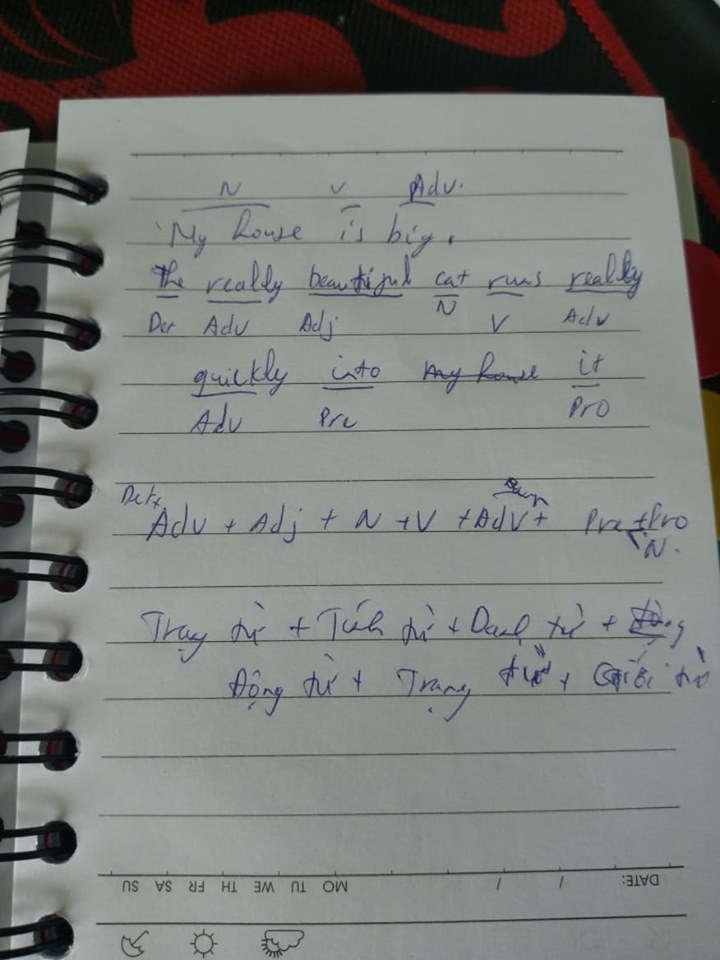 N V Adv.
My house is big.
The really beautiful cat runs really
Der Adv Adj N V Adv
quickly into my house it
Adv Pre Pro
Det+
Adv + Adj + N + V + Adv + Pre + Pro
N.
Trạng từ + Tính từ + Danh từ +
Động từ + Trạng từ + Giới từ
SU SA FR TH WE TU MO / / DATE: